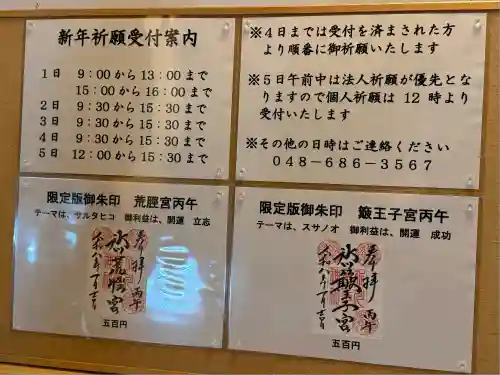 新年祈願受付案内
1日 9:00から13:00まで
15:00から16:00まで
2日 9:30から15:30まで
3日 9:30から15:30まで
4日 9:30から15:30まで
5日 12:00から15:30まで
※4日までは受付を済まされた方
より順番に御祈願いたします
※5日午前中は法人祈願が優先とな
りますので個人祈願は 12 時より
受付いたします
※その他の日時はご連絡ください
048-686-3567
限定版御朱印 荒脛宮丙午
テーマは、サルタヒコ 御利益は、開運 立志
奉拝 丙午
氷川荒脛宮
令和八年一月吉日
五百円
限定版御朱印 簸王子宮丙午
テーマは、スサノオ 御利益は、開運 成功
奉拝 丙午
氷川簸王子宮
令和八年一月吉日
五百円